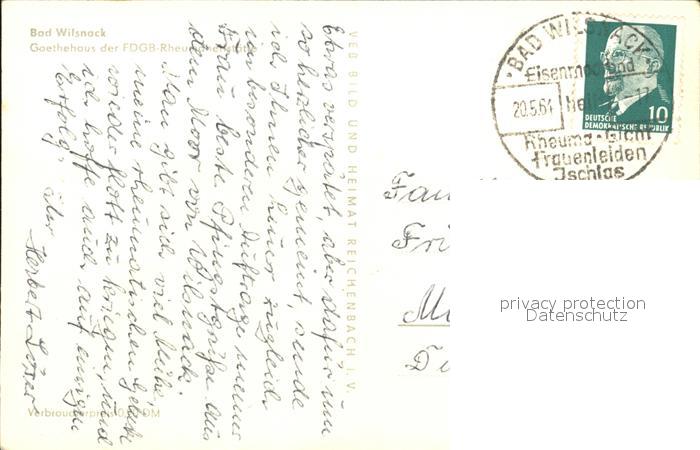 Bad Wilsnack
Goethehaus der FDGB-Rheumaheilstätte
VEB BILD UND HEIMAT REICHENBACH I. V.
Verbraucherpreis 0, DM
Etwas verspätet, aber dafür um
so herzlicher gemeint, sende
ich Ihnen hier zugleich
im besonderen Auftrage meiner
Frau beste Pfingstgrüße aus
dem Moor von Wilsnack.
Man gibt sich viel Mühe,
meine rheumatischen Gelenke
wieder flott zu kriegen, und
ich hoffe auch auf einigen
Erfolg.
Ihr
Herbert
BAD WILSNACK
Eisenmoorbad
20.5.61
heilt
Rheuma-Gicht
Frauenleiden
Ischias
10
DEUTSCHE
DEMOKRATISCHE REPUBLIK
Fam
Fri
M
privacy protection
Datenschutz